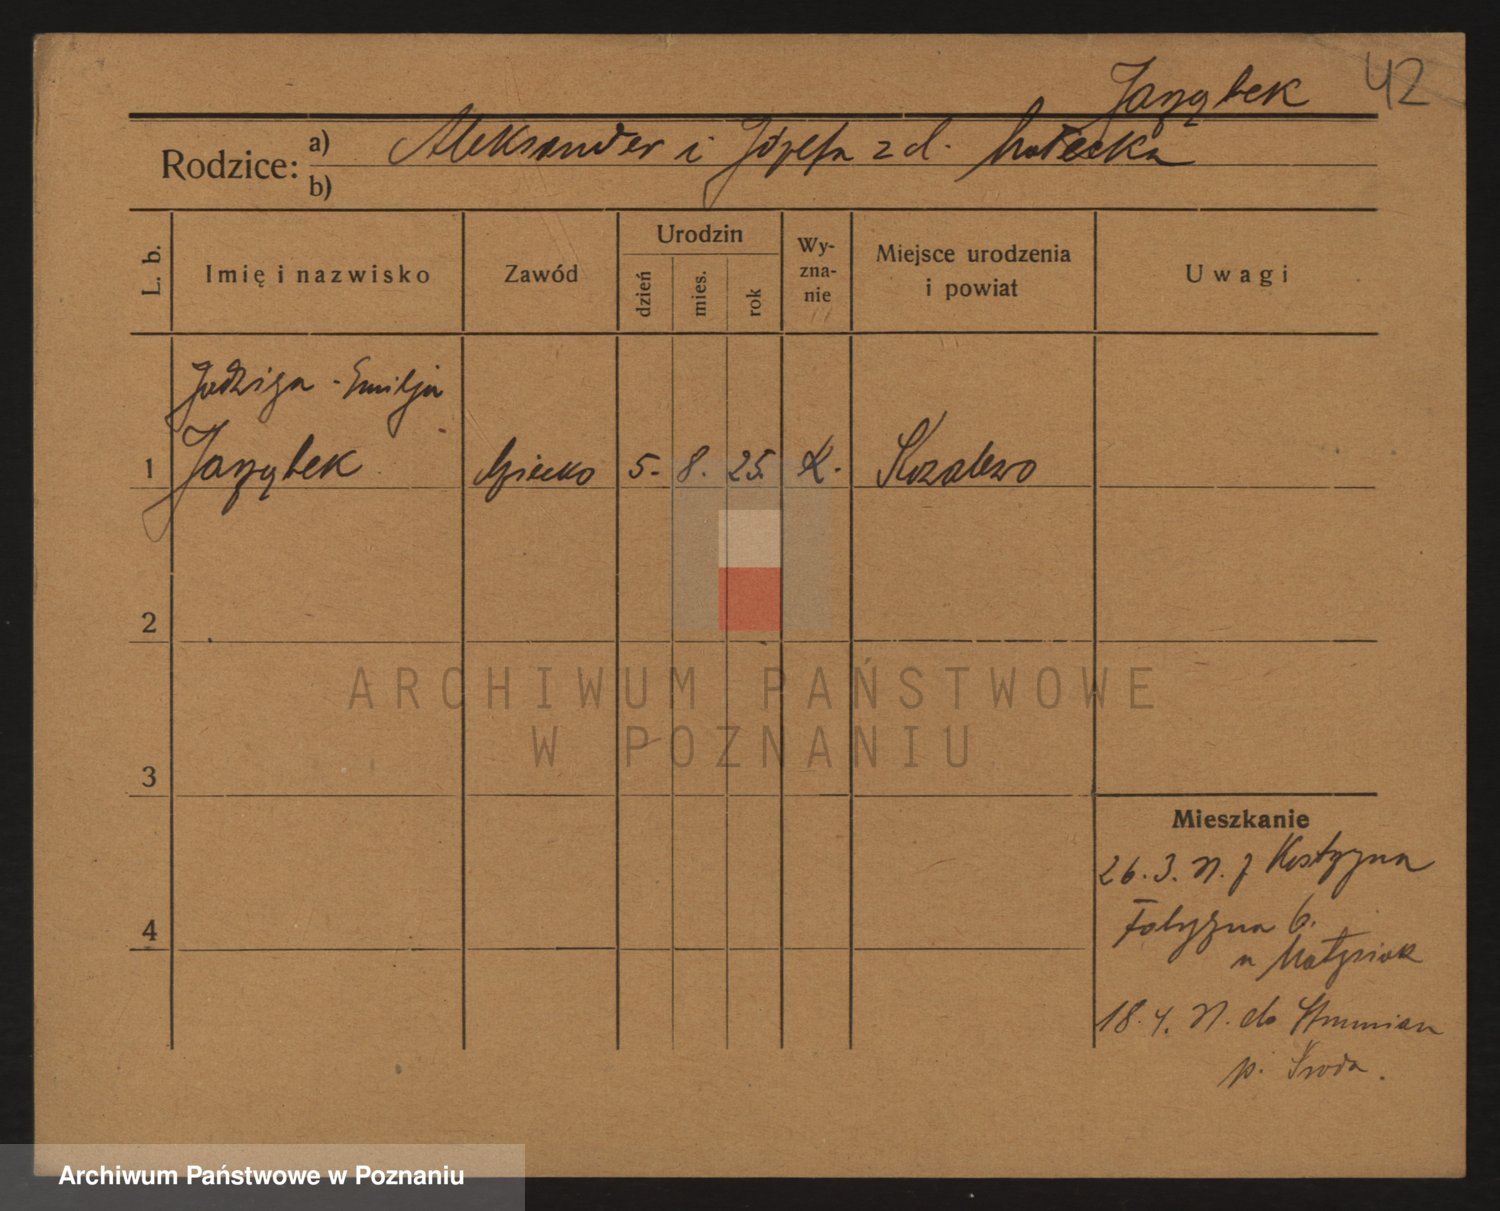 42
Jarząbek
Rodzice: a) Aleksander i Józefa z d. Małecka
b)
L. b. Imię i nazwisko Zawód Urodzin dzień mies. rok Wy-zna-nie Miejsce urodzenia i powiat Uwagi
Jadwiga - Emilja
1 Jarząbek dziecko 5. 8. 25. K.
2
ARCHIWUM PAŃSTWOWE
W POZNANIU
3
Mieszkanie
26.3. 27. z Kostrzyna
4
6.
u Matysiak
18.4. 27. do
p. Środa.
Archiwum Państwowe w Poznaniu